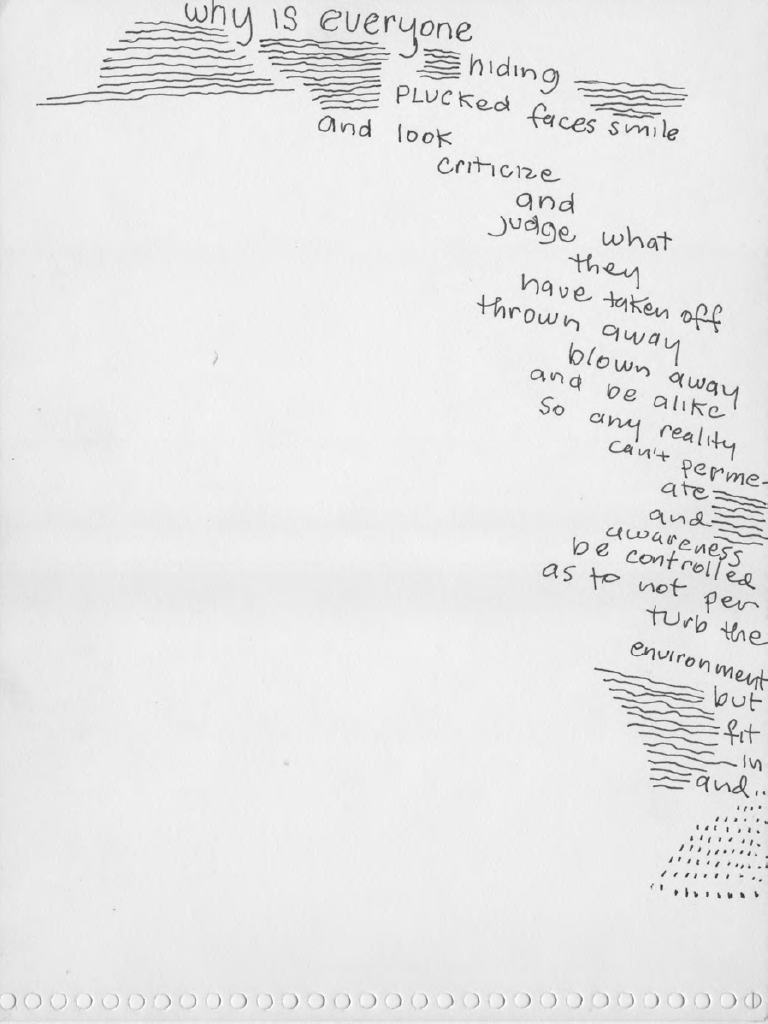 why is everyone
hiding
PLUCKED faces smile
and look
criticize
and
judge what
they
have taken off
thrown away
blown away
and be alike
so any reality
can't perme-
ate
and
awareness
be controlled
as to not per
turb the
environment
but
fit
in
and..